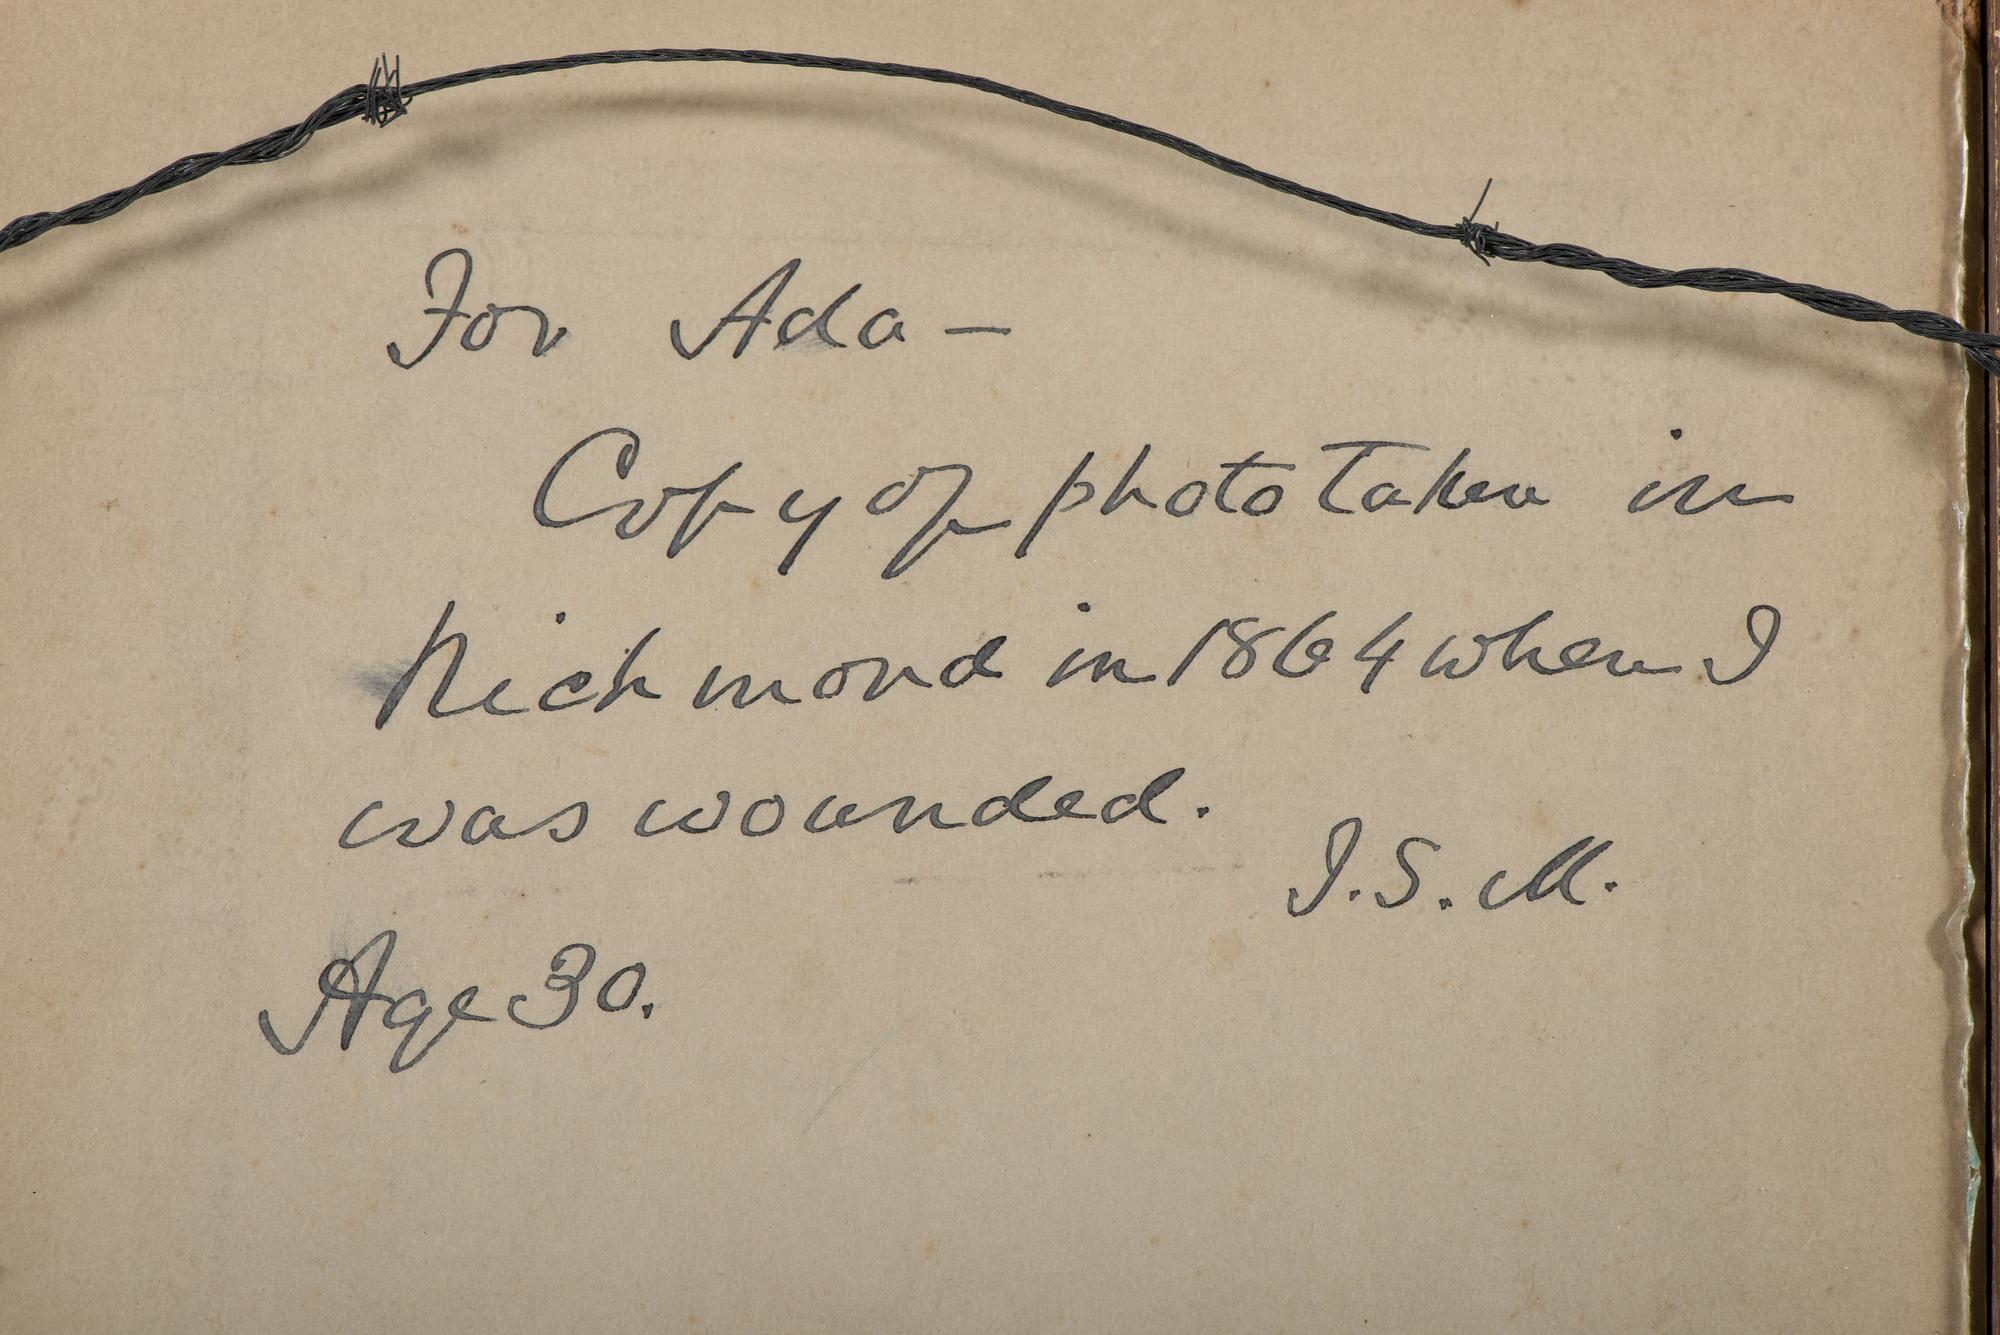 For Ada —
Copy of photo taken in
Richmond in 1864 when I
was wounded.
J.S.M.
Age 30.